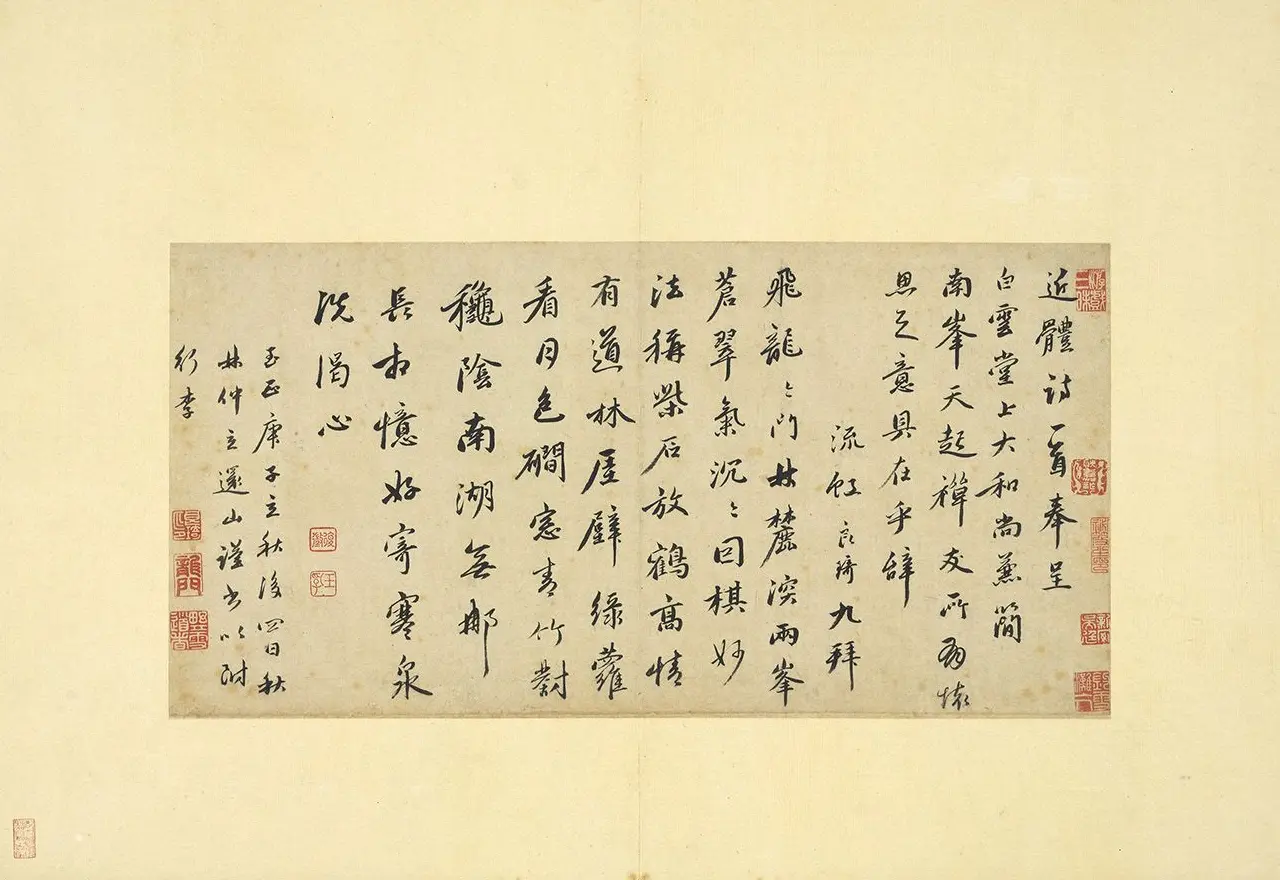 近體詩一首奉呈
白雲堂上大和尚兼簡
南峯天起禪友所為懷
思之意具在乎辭
流虹良琦九拜
飛龍々門林麓深兩峯
蒼翠氣沉々回棋妙
法稱柴石放鶴高情
有道林屋壁綠蘿
看月色磵窓青竹對
龝陰南湖無那
長相憶好寄寒泉
洗渴心
至正庚子立秋後四日秋
林仲立還山謹書以附
行李